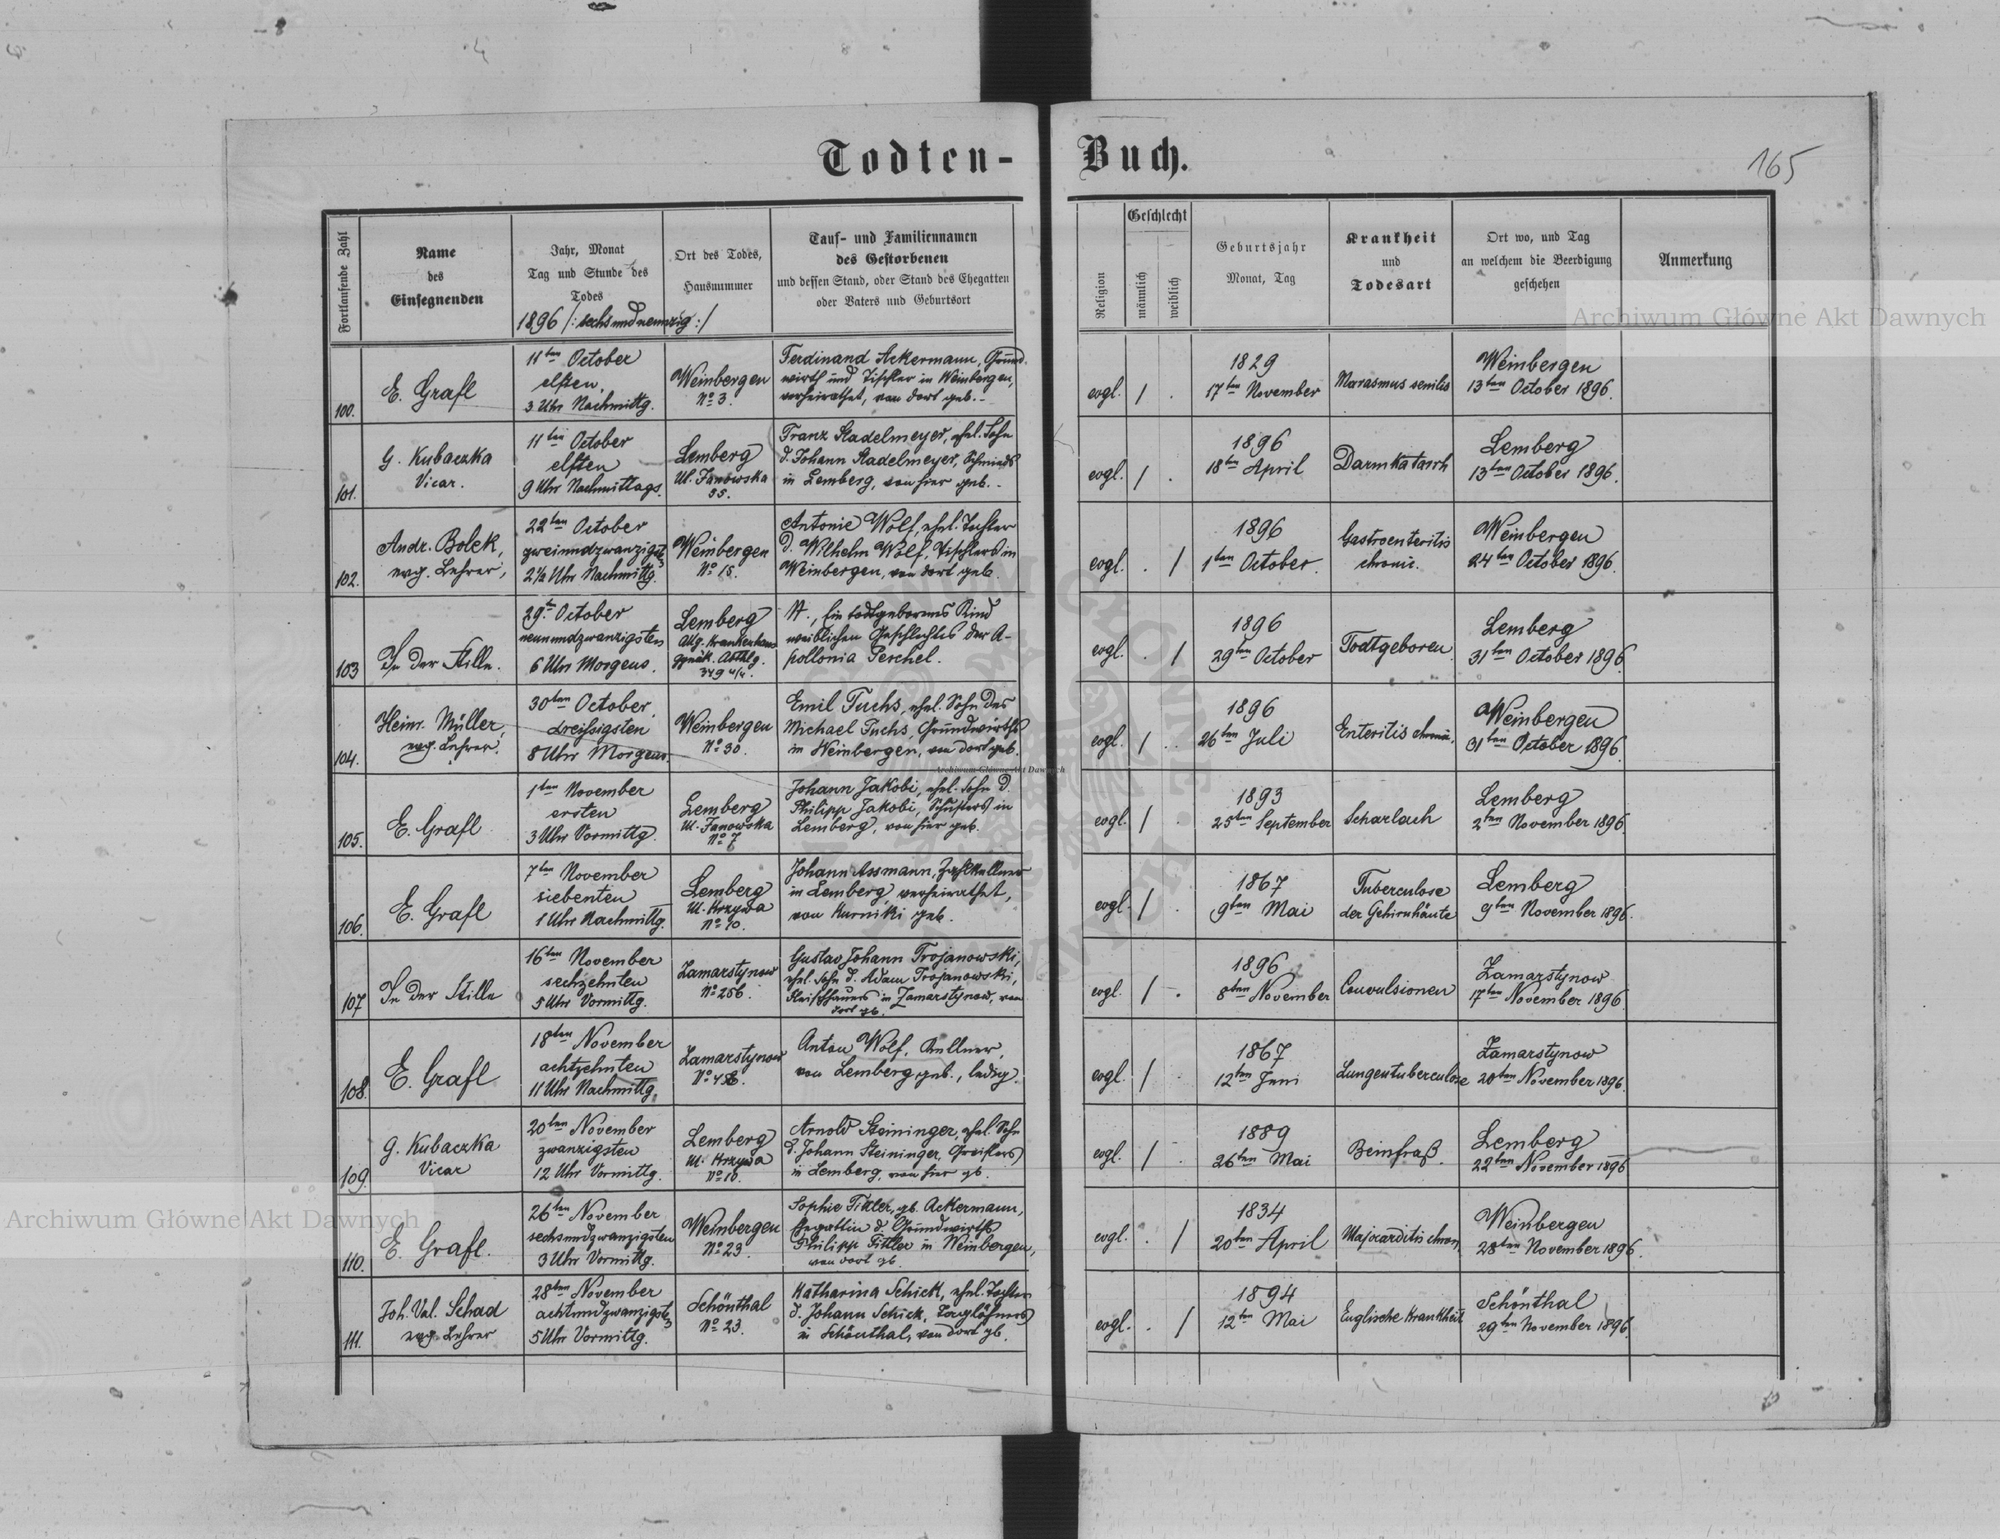 Todten-Buch.
165
Fortlaufende Zahl
Name
des
Einsegnenden
Jahr, Monat
Tag und Stunde des
Todes
1896 /: sechsundneunzig :/
Ort des Todes,
Hausnummer
Tauf- und Familiennamen
des Gestorbenen
und dessen Stand, oder Stand des Ehegatten
oder Vaters und Geburtsort
Religion
Geschlecht
männlich
weiblich
Geburtsjahr
Monat, Tag
Krankheit
und
Todesart
Ort wo, und Tag
an welchem die Beerdigung
geschehen
Anmerkung
100.
E. Grafl
11ten October
elften
3 Uhr Nachmittg.
Weinbergen
No 3.
Ferdinand Ackermann, Grund-
wirth und Tischler in Weinbergen,
verheirathet, von dort geb.
evgl. /
1829
17ten November
Marasmus senilis
Weinbergen
13ten October 1896.
101.
G. Kubaczka
Vicar.
11ten October
elften
9 Uhr Nachmittags.
Lemberg
Ul. Janowska
55.
Franz Stadelmeyer, ehel. Sohn
d. Johann Stadelmeyer, Schmieds
in Lemberg, von hier geb.
evgl. /
1896
18ten April
Darmkatarrh
Lemberg
13ten October 1896.
102.
Andr. Bolek,
evg. Lehrer,
22ten October
zweiundzwanzigst
2½ Uhr Nachmittg.
Weinbergen
No 15.
Antonie Wolf, ehel. Tochter
d. Wilhelm Wolf, Tischlers in
Weinbergen, von dort geb.
evgl. . /
1896
1ten October.
Gastroenteritis
chronic.
Weinbergen
24ten October 1896.
103
In der Stille.
29.t October
neunundzwanzigsten
6 Uhr Morgens.
Lemberg
Allg. Krankenhaus
Abthlg.
N., Ein todtgeborenes Kind
weiblichen Geschlechtes der A-
pollonia Perchel.
evgl. . /
1896
29ten October
Todtgeboren
Lemberg
31ten October 1896.
104.
Heinr. Müller,
evg. Lehrer.
30ten October,
dreißigsten
8 Uhr Morgens
Weinbergen
No 30.
Emil Fuchs, ehel. Sohn des
Michael Fuchs, Grundwirths
in Weinbergen, von dort geb.
evgl. / .
1896
26ten Juli
Enteritis chronic.
Weinbergen
31ten October 1896.
105.
E. Grafl
1ten November
ersten
3 Uhr Vormittg.
Lemberg
Ul. Janowska
No 7
Johann Jakobi, ehel. Sohn d.
Philipp Jakobi, Schusters in
Lemberg, von hier geb.
evgl. / .
1893
25ten September
Scharlach
Lemberg
2ten November 1896.
106.
E. Grafl
7ten November
siebenten
1 Uhr Nachmittg.
Lemberg
Ul. Krzywa
No 10.
Johann Assmann, Zahlkellner
in Lemberg, verheirathet,
von Kurniki geb.
evgl. / .
1867
9ten Mai
Tuberculose
der Gehirnhäute
Lemberg
9ten November 1896.
107
In der Stille
16ten November
sechzehnten
5 Uhr Vormittg.
Zamarstynow
No 256.
Gustav Johann Trojanowski,
ehel. Sohn d. Adam Trojanowski,
Fleischhauers in Zamarstynow, von
dort gb.
evgl. / .
1896
8ten November
Convulsionen
Zamarstynow
17ten November 1896.
108.
E. Grafl
18ten November
achtzehnten
11 Uhr Nachmittg.
Zamarstynow
Anton Wolf, Kellner,
von Lemberg geb., ledig.
evgl. / .
1867
12ten Juni
Lungentuberculose
Zamarstynow
20ten November 1896.
109.
G. Kubaczka
Vicar
20ten November
zwanzigsten
12 Uhr Vormittg.
Lemberg
Ul. Krzywa
No 10.
Arnold Steininger, ehel. Sohn
d. Johann Steininger, Greißlers
in Lemberg, von hier gb.
evgl. / .
1889
26ten Mai
Beinfraß.
Lemberg
22ten November 1896
110.
E. Grafl.
26ten November
sechsundzwanzigsten
3 Uhr Vormittg.
Weinbergen
No 23.
Sophie Fittler, gb. Ackermann,
Ehegattin d. Grundwirths
Philipp Fittler in Weinbergen,
von dort gb.
evgl. . /
1834
20ten April
Weinbergen
28ten November 1896.
111.
Joh. Val. Schad
evg. Lehrer
28ten November
achtundzwanzigst
5 Uhr Vormittg.
Schönthal
No 23.
Katharina Schick, ehel. Tochter
d. Johann Schick, Taglöhners
in Schönthal, von dort gb.
evgl. . /
1894
12ten Mai
Englische Krankheit
Schönthal
29ten November 1896.
Archiwum Główne Akt Dawnych
Archiwum Główne Akt Dawnych
Archiwum Główne Akt Dawnych